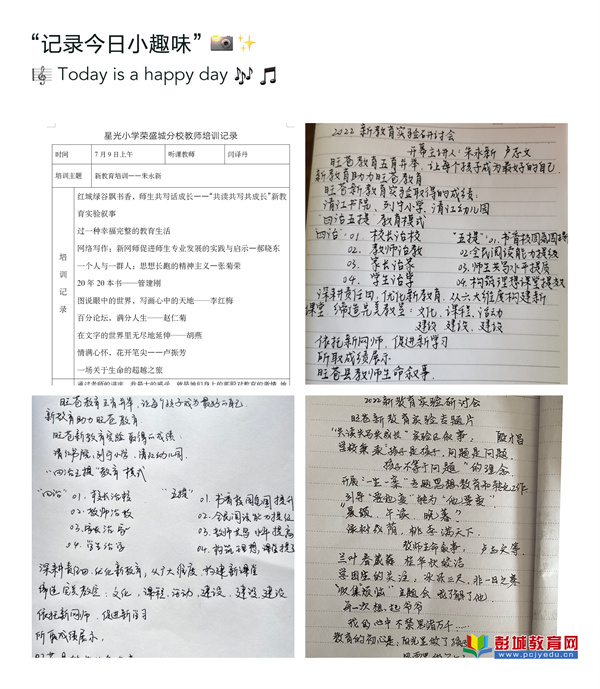 “记录今日小趣味” 📷✨
🎼 Today is a happy day 🎶 🎵
星光小学荣盛城分校教师培训记录
时间 7月9日上午 听课教师 闫译丹
培训主题 新教育培训——朱永新
培训记录
红城绿谷飘书香，师生共写话成长——“共读共写共成长”新教
育实验叙事
过一种幸福完整的教育生活
网络写作：新网师促进师生专业发展的实践与启示—郝晓东
一个人与一群人：思想长跑的精神主义—张菊荣
20年20本书——管建刚
图说眼中的世界，写画心中的天地——李红梅
百分论坛，满分人生——赵仁菊
在文字的世界里无尽地延伸——胡燕
情满心怀，花开笔尖——卢振芳
一场关于生命的超越之旅
2022新教育实验研讨会
开幕主讲人：朱永新 卢志文
旺苍教育五育并举，让每个孩子成为最好的自己
新教育助力旺苍教育
旺苍新教育实验取得的成绩：
清江书院，列宁小学，清江幼儿园
“四治五提”教育模式
“四治”01. 校长治校
02. 教师治教
03. 家长治家
04. 学生治学
“五提”01. 书香校园氛围
02. 全民阅读能力提级
03. 师生共写水平提质
04. 构筑理想课堂提效
深耕责任田，优化新教育，从六大维度构建新
课堂 缔造完美教室：文化，课程，活动
建设 建设 建设
依托新网师，促进新学习
所取成绩展示
旺苍县教师生命叙事.
旺苍教育五育并举，让每个孩子成为最好的自己
新教育助力旺苍教育
旺苍新教育实验取得的成绩
清江书院，列宁小学，清江幼儿园
“四治五提”教育模式
“四治”01. 校长治校
02. 教师治教
03. 家长治家
04. 学生治学
“五提”01. 书香校园氛围提升
02. 全民阅读能力提级
03. 师生共写水平提高
04. 构筑理想课堂提
深耕责任田，优化新教育，从六大维度，构建新课堂
缔造完美教室：文化，课程，活动，建设，建设 建设
依托新网师，促进新学习
所取成绩展示。
2022新教育实验研讨会
旺苍新教育实验专题片
“共读共写共成长”实验区叙事：
孩子不等于问题”的理念.
“晨诵、午读、暮落？
教师生命叙事：
我的心中不禁思绪万千……
彭城教育网
www.pcjyedu.cn